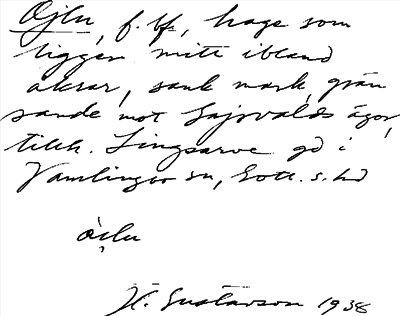 Ojlu, f. lf, hage som
ligger mitt ibland
åkrar, sank mark, grän
sande mot Sajvalds ägor,
tillh. Lingsarve gd i
Vamlingbo sn, Gotl. s. hd
H. Gustavson 1938